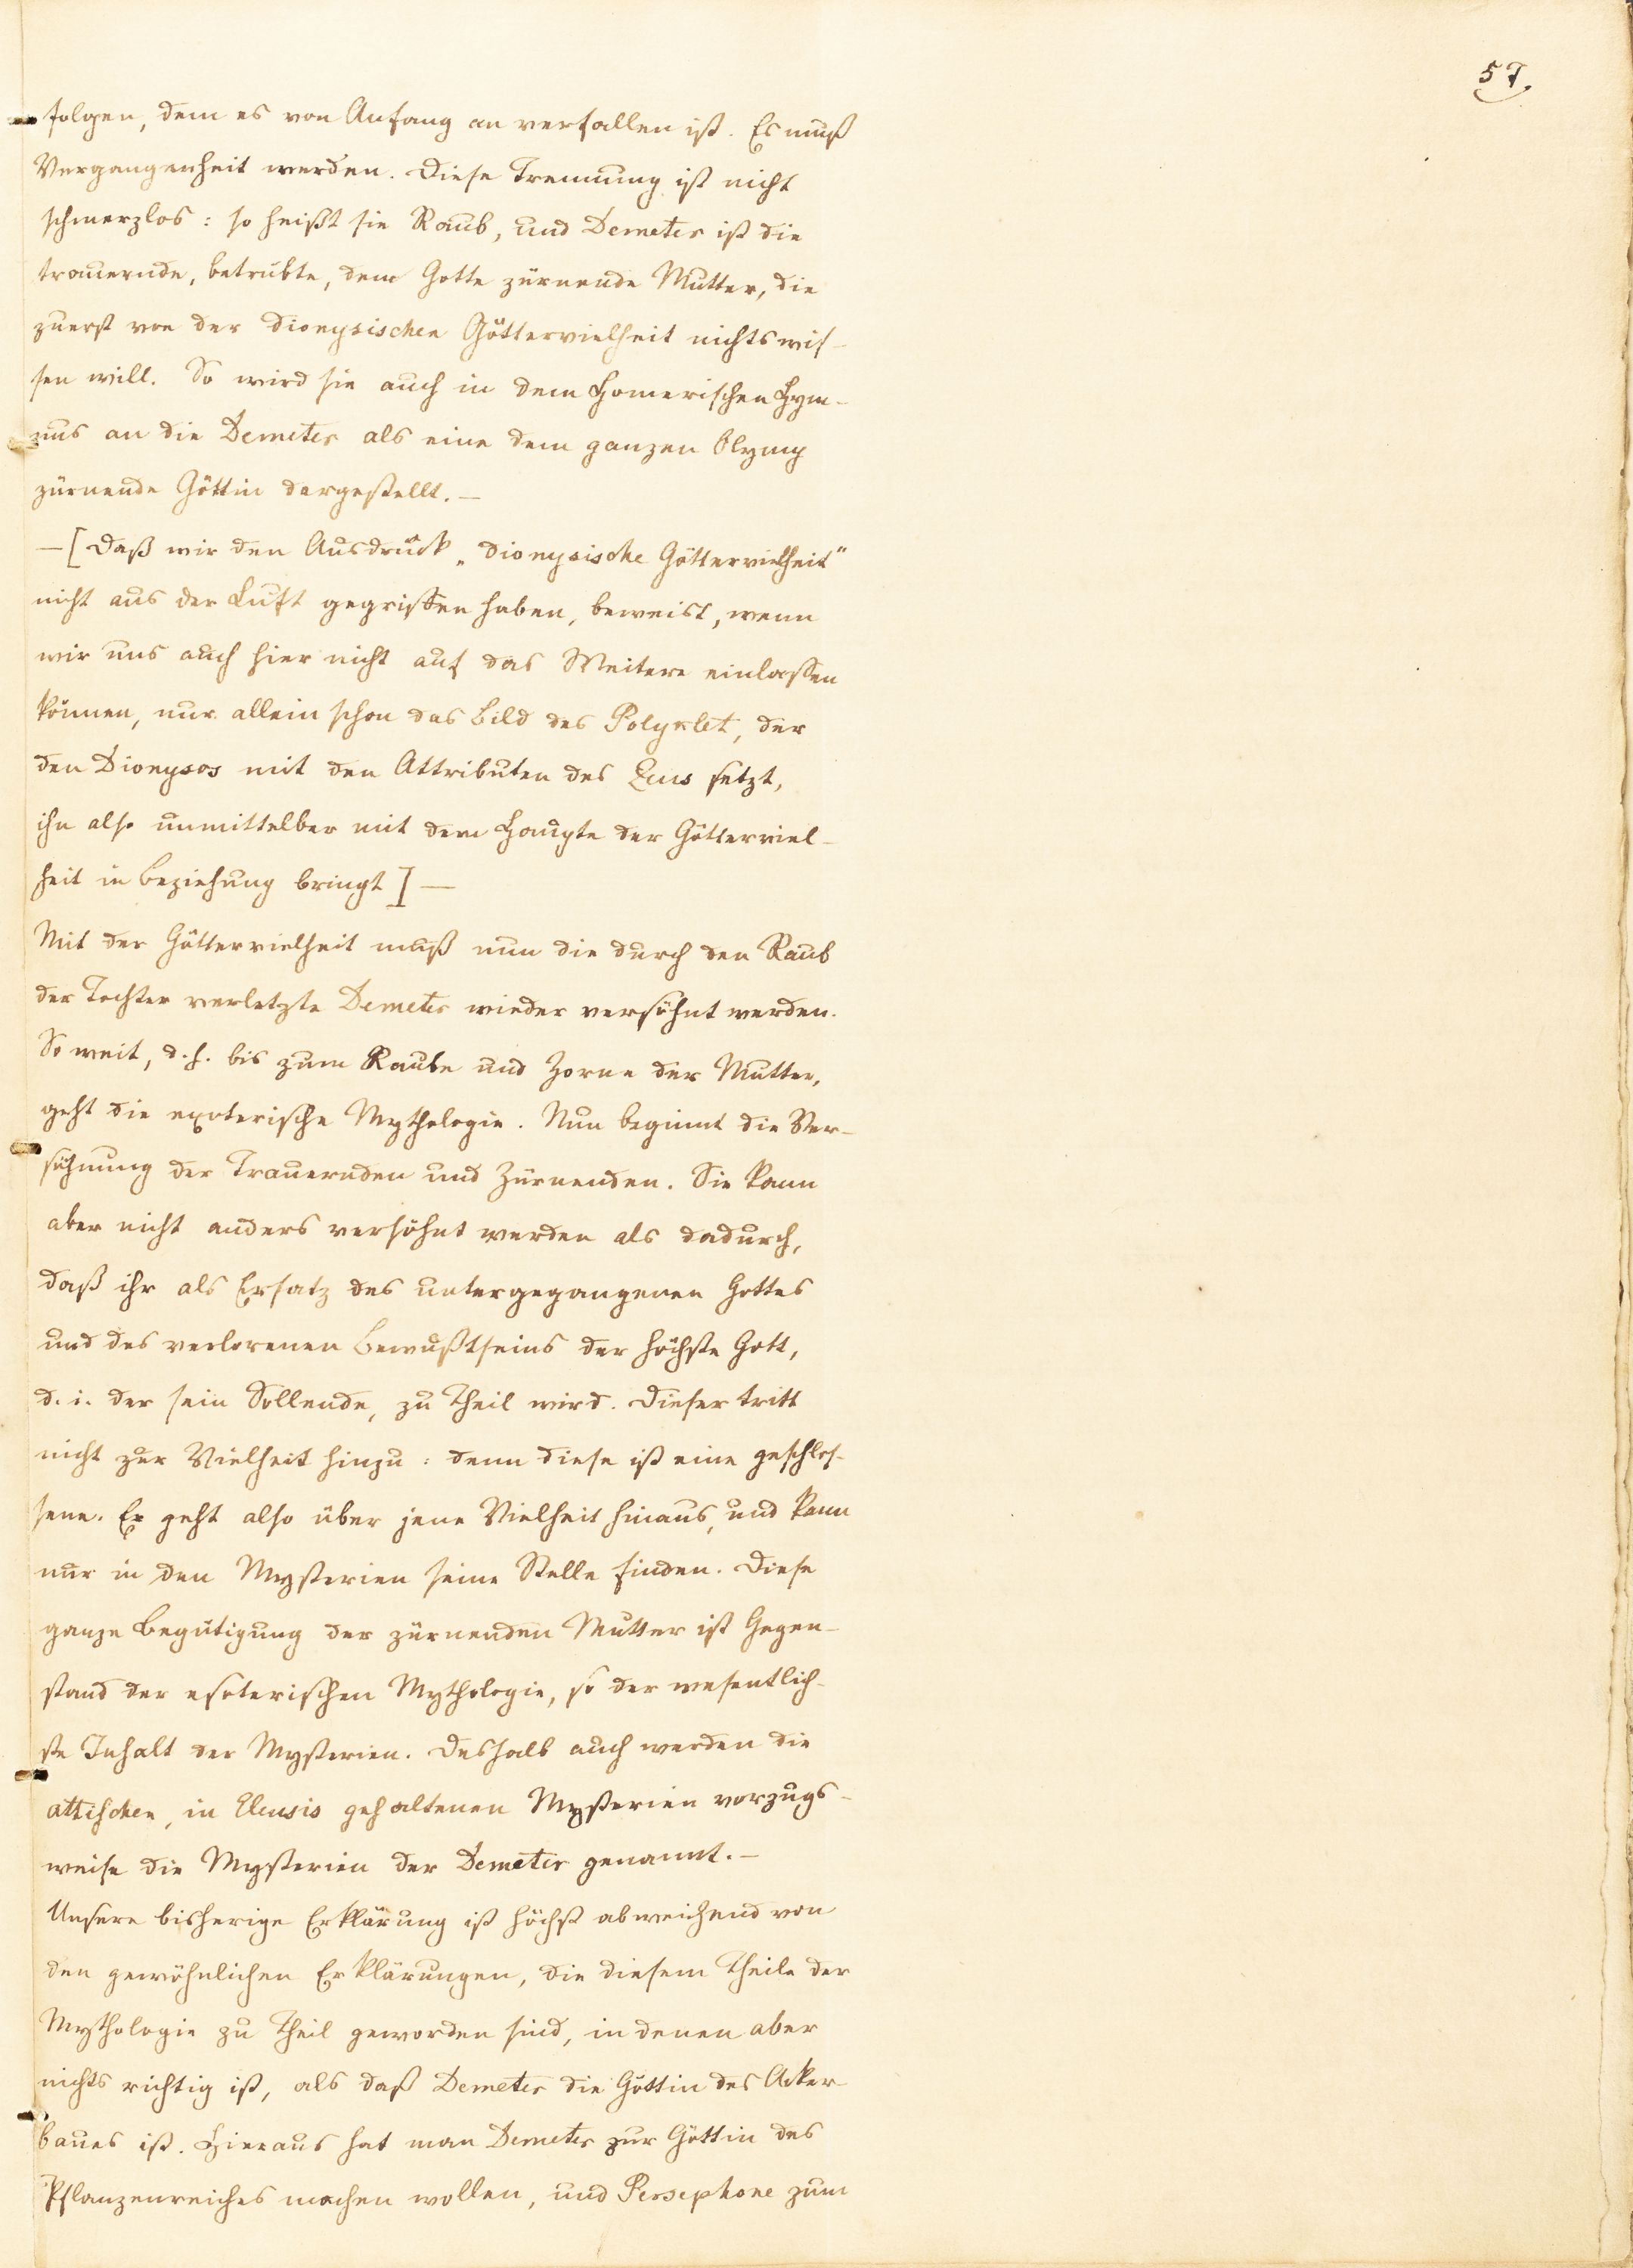 57.
folgen, dem es von Anfang an verfallen ist. Es muß
Vergangenheit werden. Diese Trennung ist nicht
schmerzlos: so heißt sie Raub, und Demeter ist die
trauernde, betrübte, dem Gotte zürnende Mutter, die
zuerst von der dionysischen Göttervielheit nichts wis-
sen will. So wird sie auch in dem Homerischen Hym-
nus an die Demeter als eine dem ganzen Olymp
zürnende Göttin dargestellt. —
— [Daß wir den Ausdruck „dionysische Göttervielheit“
nicht aus der Luft gegriffen haben, beweist, wenn
wir uns auch hier nicht auf das Weitere einlassen
können, nur allein schon das Bild des Polyklet, der
den Dionysos mit den Attributen des Zeus setzt,
ihn also unmittelbar mit dem Haupte der Götterviel-
heit in Beziehung bringt] —
Mit der Göttervielheit muß nun die durch den Raub
der Tochter verletzte Demeter wieder versöhnt werden.
So weit, d. h. bis zum Raube und Zorne der Mutter,
geht die exoterische Mythologie. Nun beginnt die Ver-
söhnung der Trauernden und Zürnenden. Sie kann
aber nicht anders versöhnt werden als dadurch,
daß ihr als Ersatz des untergegangenen Gottes
und des verlorenen Bewußtseins der höchste Gott,
d. i. der sein Sollende, zu Theil wird. Dieser tritt
nicht zur Vielheit hinzu: denn diese ist eine geschlos-
sene. Er geht also über jene Vielheit hinaus, und kann
nur in den Mysterien seine Stelle finden. Diese
ganze Begütigung der zürnenden Mutter ist Gegen-
stand der esoterischen Mythologie, so der wesentlich-
ste Inhalt der Mysterien. Deshalb auch werden die
attischen, in Eleusis gehaltenen Mysterien vorzugs-
weise die Mysterien der Demeter genannt. —
Unsere bisherige Erklärung ist höchst abweichend von
den gewöhnlichen Erklärungen, die diesem Theile der
Mythologie zu Theil geworden sind, in denen aber
nichts richtig ist, als daß Demeter die Göttin des Acker-
baues ist. Hieraus hat man Demeter zur Göttin des
Pflanzenreiches machen wollen, und Persephone zum